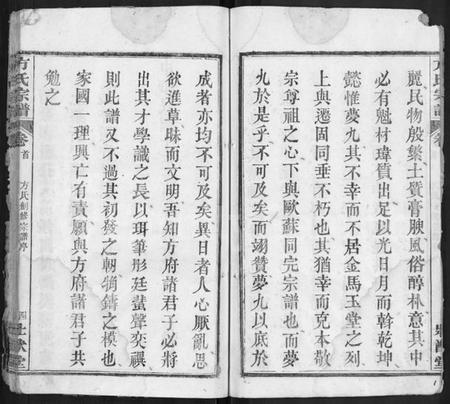 麗民物殷蘩土質膏腴風俗醇朴意其中
必有魁材瑋質出足以光日月而斡乾坤
懿惟夢九其不幸而不居金馬玉堂之列
上與遷固同垂不朽也其猶幸而克本敬
宗尊祖之心下與歐蘇同完宗譜也而夢
九於是乎不可及矣而翊贊夢九以底於
方氏宗譜
卷首
方氏創修宗譜序
四
成者亦均不可及矣異日者人心厭亂思
欲進草昧而文明吾知方府諸君子必將
出其才學識之長以珥筆彤廷蜚聲奕禩
則此譜又不過其初發之軔犄鑄之模也
家國一理興亡有責願與方府諸君子共
勉之